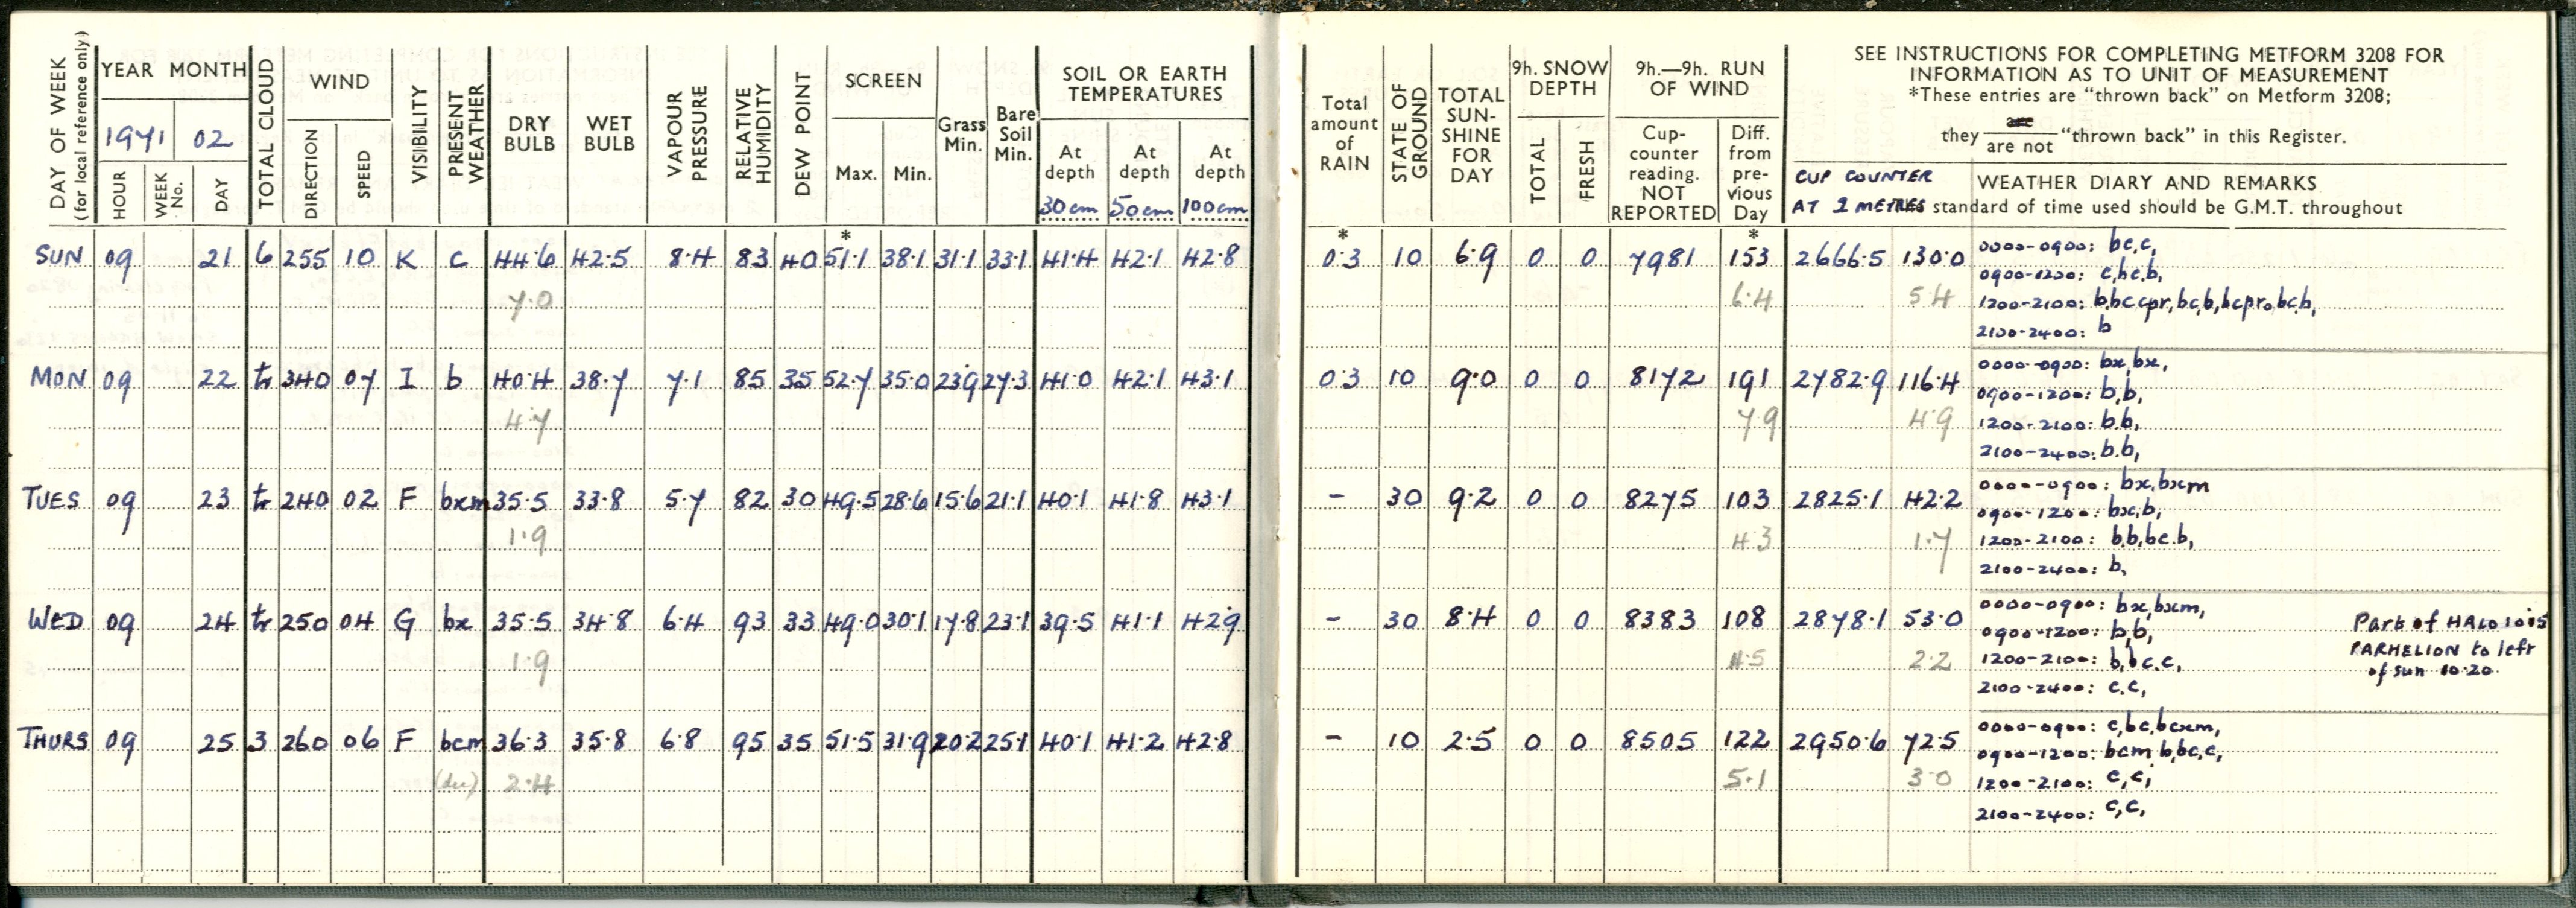 DAY OF WEEK
(for local reference only)
YEAR MONTH
1971 02
HOUR
WEEK No.
DAY
TOTAL CLOUD
WIND
DIRECTION
SPEED
VISIBILITY
PRESENT WEATHER
DRY BULB
WET BULB
VAPOUR PRESSURE
RELATIVE HUMIDITY
DEW POINT
SCREEN
Max.
Min.
Grass Min.
Bare Soil Min.
SOIL OR EARTH TEMPERATURES
At depth 30 cm
At depth 50 cm
At depth 100 cm
Total amount of RAIN
STATE OF GROUND
TOTAL SUN-SHINE FOR DAY
9h. SNOW DEPTH
TOTAL
FRESH
9h.—9h. RUN OF WIND
Cup-counter reading. NOT REPORTED
Diff. from pre-vious Day
SEE INSTRUCTIONS FOR COMPLETING METFORM 3208 FOR
INFORMATION AS TO UNIT OF MEASUREMENT
*These entries are “thrown back” on Metform 3208;
they are / are not “thrown back” in this Register.
CUP COUNTER
AT 2 METRES
WEATHER DIARY AND REMARKS
standard of time used should be G.M.T. throughout
* * *
SUN 09 21 6 255 10 K c 44.6 42.5 8.4 83 40 51.1 38.1 31.1 33.1 41.4 42.1 42.8 0.3 10 6.9 0 0 7981 153 2666.5 130.0
7.0 6.4 5.4
0000-0900: bc,c,
0900-1200: c,bc,b,
1200-2100: b,bc,cpr,bc,b,bcpr₀,bc,b,
2100-2400: b
MON 09 22 tr 340 07 I b 40.4 38.7 7.1 85 35 52.7 35.0 23.9 27.3 41.0 42.1 43.1 0.3 10 9.0 0 0 8172 191 2782.9 116.4
4.7 7.9 4.9
0000-0900: bx,bx,
0900-1200: b,b,
1200-2100: b.b,
2100-2400: b.b,
TUES 09 23 tr 240 02 F bxm 35.5 33.8 5.7 82 30 49.5 28.6 15.6 21.1 40.1 41.8 43.1 - 30 9.2 0 0 8275 103 2825.1 42.2
1.9 4.3 1.7
0000-0900: bx,bxm
0900-1200: bx,b,
1200-2100: b,b,bc.b,
2100-2400: b,
WED 09 24 tr 250 04 G bx 35.5 34.8 6.4 93 33 49.0 30.1 17.8 23.1 39.5 41.1 42.9 - 30 8.4 0 0 8383 108 2878.1 53.0
1.9 4.5 2.2
0000-0900: bx,bxm,
0900-1200: b,b,
1200-2100: b,bc.c,
2100-2400: c.c,
Part of HALO 1015
PARHELION to left
of sun 10.20
THURS 09 25 3 260 06 F bcm 36.3 35.8 6.8 95 35 51.5 31.9 20.2 25.1 40.1 41.2 42.8 - 10 2.5 0 0 8505 122 2950.6 72.5
(dew) 2.4 5.1 3.0
0000-0900: c,bc,bcxm,
0900-1200: bcm b,bc,c,
1200-2100: c,c,
2100-2400: c,c,